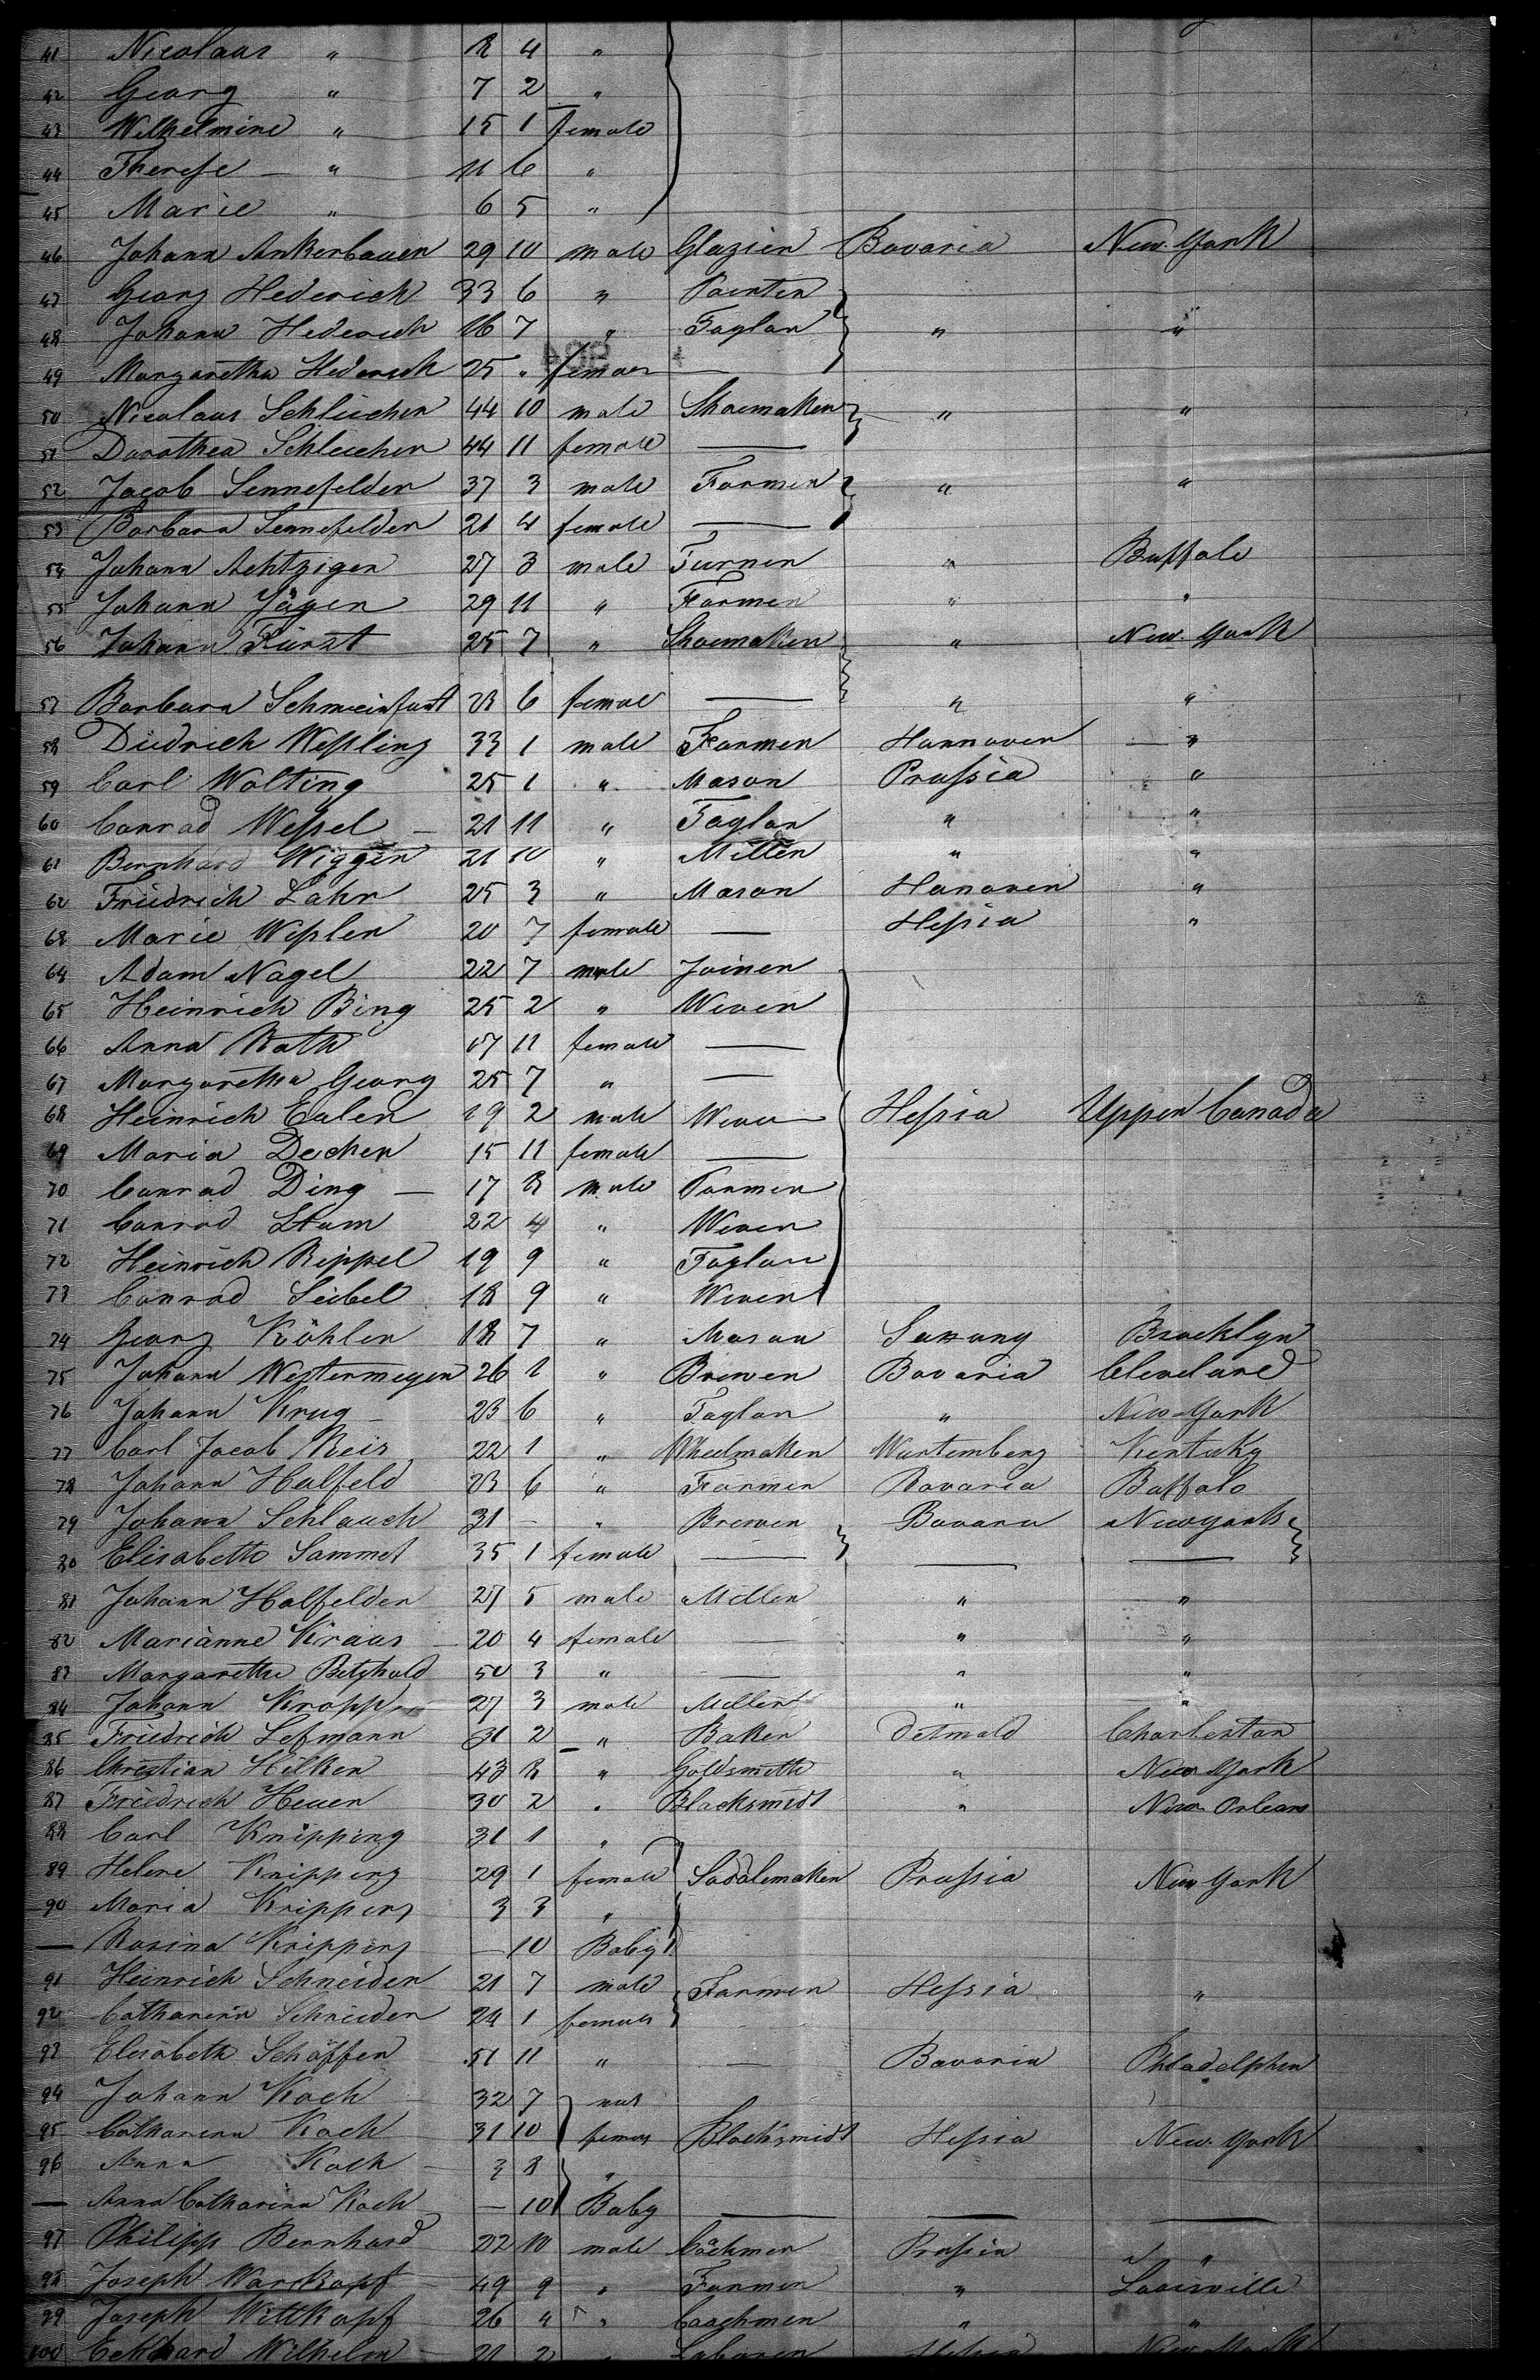 41 Nicolaus " 8 4 "
42 Georg " 7 2 "
43 Wilhelmine " 15 1 female
44 Therese — " 11 6 "
45 Marie " 6 5 "
46 Johann Ankerbauer 29 10 male Glazier Bavaria New-York
47 Georg Hederich 33 6 " Painter
48 Johann Hederich 16 7 " Taylor " "
49 Margaretha Hederich 25 " female —
50 Nicolaus Schleicher 44 10 male Shoemaker " "
51 Dorothea Schleicher 44 11 female —
52 Jacob Sennefelder 37 3 male Farmer " "
53 Barbara Sennefelder 21 4 female —
54 Johann Achtziger 27 3 male Turner " Buffalo
55 Johann Jäger 29 11 " Farmer " "
56 Johann Fürst 25 7 " Shoemaker " New-York
57 Barbara 23 6 female — " "
58 Diedrich Weßling 33 1 male Farmer Hannover — "
59 Carl Wolting 25 1 " Mason Prussia "
60 Conrad Wessel — 21 11 " Taylor " "
61 Bernhard Wigger 21 10 " Miller " "
62 Friedrich Lahr 25 3 " Mason Hanover "
63 Marie 20 7 female — Hessia "
64 Adam Nagel 22 7 male Joiner
65 Heinrich Bing 25 2 " Wever
66 Anna Roth 17 11 female —
67 Margaretha Georg 25 7 " —
68 Heinrich Euler 19 2 male Wever Hessia Upper Canada
69 Maria Decher 15 11 female —
70 Conrad Ding — 17 8 male Farmer
71 Conrad Stum 22 4 " Wever
72 Heinrich Rippel 19 9 " Taylor
73 Conrad Seibel 18 9 " Wever
74 Georg Köhler 18 7 " Mason Saxony Brocklyn
75 Johann Westermeyer 26 1 " Brewer Bavaria Cleveland
76 Johann Krug — 23 6 " Taylor " New-York
77 Carl Jacob Reis 22 1 " Wheelmaker Wurtemberg Kentuky
78 Johann Halfeld 23 6 " Farmer Bavaria Buffalo
79 Johann Schlauch 31 — " Brewer Bavaria Newyork
80 Elisabetha Sammet 35 1 female — — —
81 Johann Halfelder 27 5 male Miller " "
82 Marianne Kraus — 20 4 female — " "
83 Margaretha 50 3 " — " "
84 Johann Kropp 27 3 male Miller " "
85 Friedrich Lefmann 31 2 " Baker Detmold Charlestan
86 Christian Hilker 43 8 " Goldsmith " New-York
87 Friedrich Heuer 30 2 " Blacksmidt " New-Orleans
88 Carl Knipping 31 1 "
89 Helene Knipping 29 1 female Sadalemaker Prussia New-York
90 Maria Knipping 3 3 "
— Rosina Knipping — 10 Baby
91 Heinrich Schneider 21 7 male Farmer Hessia "
92 Catharina Schneider 24 1 female
93 Elisabeth Schäffer 51 11 " — Bavaria Philadelphia
94 Johann Koch 32 7 male
95 Catharina Koch 31 10 female Blacksmidt Hessia New-York
96 Anna Koch 3 8 "
— Anna Catharina Koch — 10 Baby — — —
97 Philipp Bernhard 22 10 male Cöchmen Prussia "
98 Joseph Warkopf 49 9 " Farmer " Louisville
99 Joseph Wittkopf 26 4 " Coachmen " "
100 Eckhard Wilhelm — 21 2 " Laborer Hessia New-York